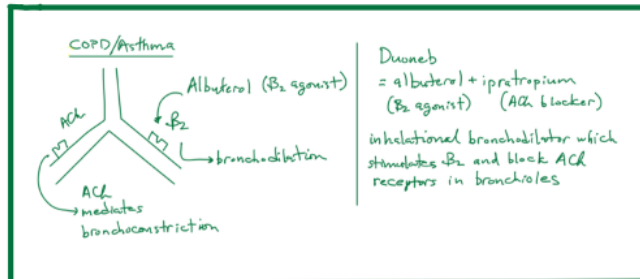 COPD/Asthma
ACh
Albuterol (B₂ agonist)
B₂
bronchodilation
ACh
mediates
bronchoconstriction
Duoneb
= albuterol + ipratropium
(B₂ agonist) (ACh blocker)
inhalational bronchodilator which
stimulates B₂ and block ACh
receptors in bronchioles